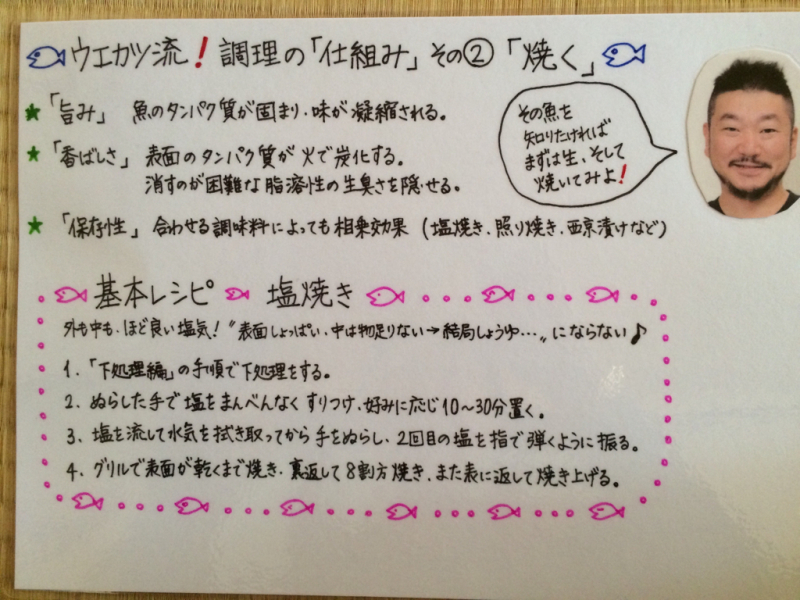 ウエカツ流！調理の「仕組み」その②「焼く」
★「旨み」 魚のタンパク質が固まり、味が凝縮される。
★「香ばしさ」 表面のタンパク質が火で炭化する。
消すのが困難な脂溶性の生臭さを隠せる。
★「保存性」 合わせる調味料によっても相乗効果（塩焼き、照り焼き、西京漬けなど）
その魚を
知りたければ
まずは生、そして
焼いてみよ！
基本レシピ 塩焼き
外も中も、ほど良い塩気！〝表面しょっぱい、中は物足りない→結局しょうゆ…〟にならない♪
1、「下処理編」の手順で下処理をする。
2、ぬらした手で塩をまんべんなくすりつけ、好みに応じ10〜30分置く。
3、塩を流して水気を拭き取ってから手をぬらし、2回目の塩を指で弾くように振る。
4、グリルで表面が乾くまで焼き、裏返して8割方焼き、また表に返して焼き上げる。